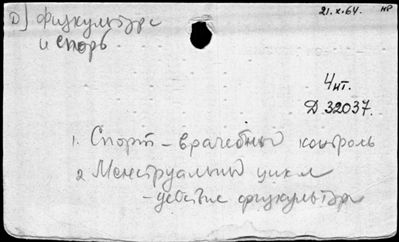 D) физкультура
и спорт
21.X.64. НР
4 чт.
D 32037.
1. Спорт - врачебный контроль
2 Менструальный цикл
- действие физкультуры